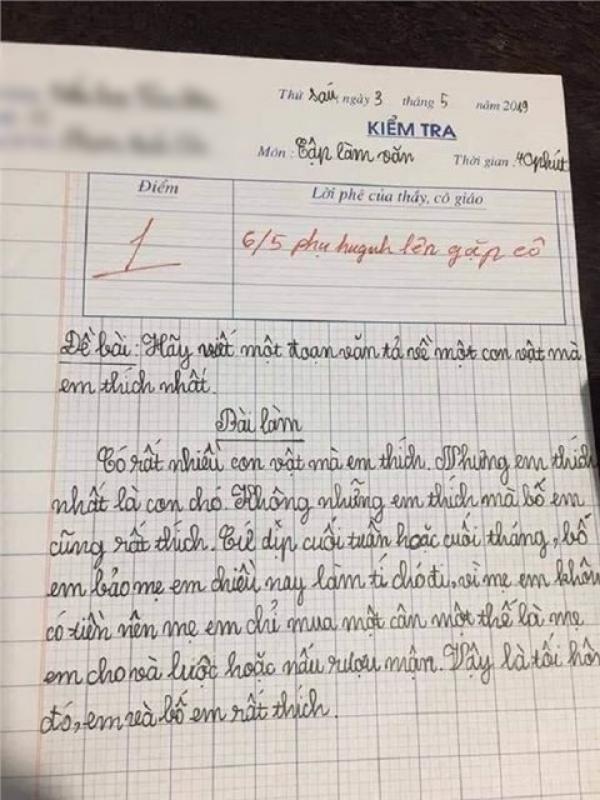 Thứ sáu, ngày 3 tháng 5 năm 2019
KIỂM TRA
Môn: Tập làm văn Thời gian: 40 phút
Điểm
Lời phê của thầy, cô giáo
1
6/5 phụ huynh lên gặp cô
Đề bài: Hãy viết một đoạn văn tả về một con vật mà
em thích nhất.
Bài làm
Có rất nhiều con vật mà em thích. Nhưng em thích
nhất là con chó. Không những em thích mà bố em
cũng rất thích. Cứ dịp cuối tuần hoặc cuối tháng, bố
em bảo mẹ em chiều nay làm tí chó đi, vì mẹ em khôn
có tiền nên mẹ em chỉ mua một cân một thế là mẹ
em cho và luộc hoặc nấu rượu mận. Vậy là tối hôm
đó, em và bố em rất thích.